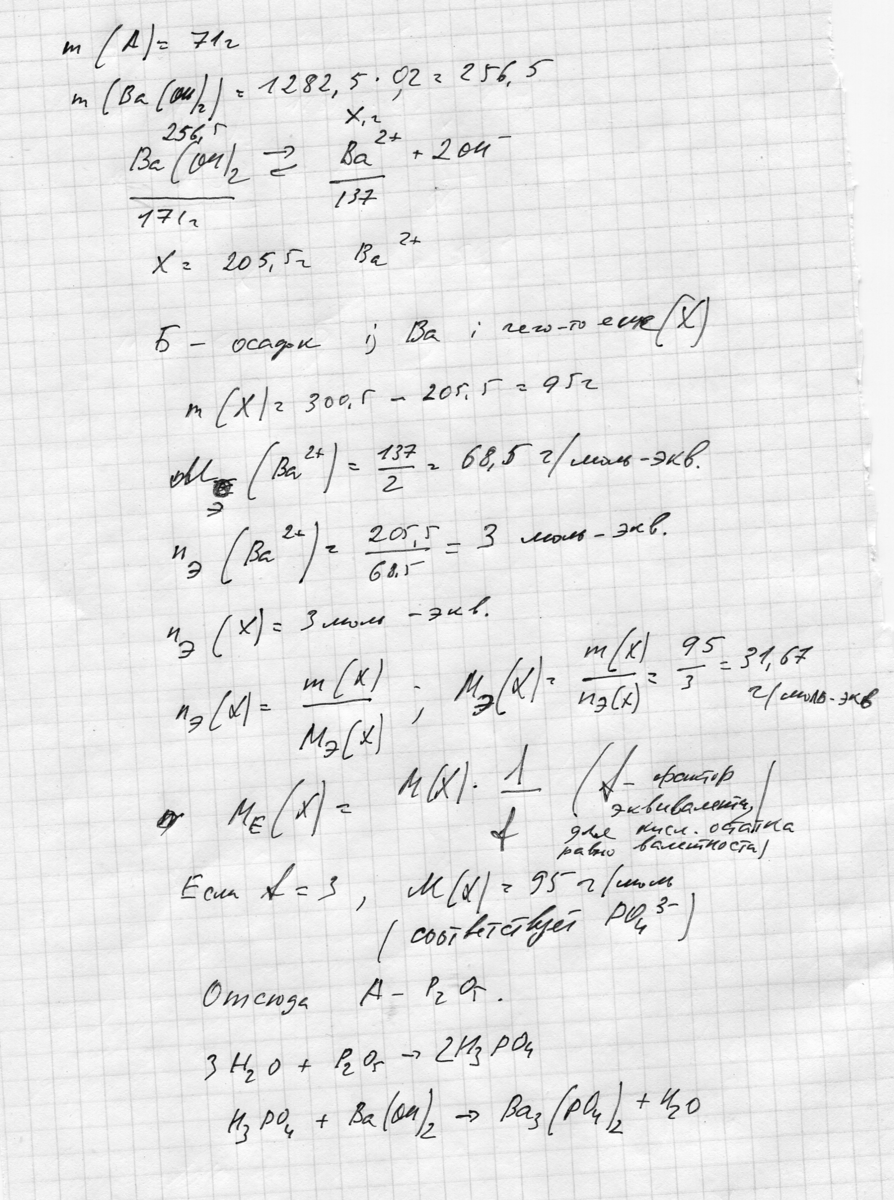 m (A) = 71 г
m (Ba(OH)₂) = 1282,5 · 0,2 = 256,5
256,5 X, г
Ba(OH)₂ ⇄ Ba²⁺ + 2OH⁻
171 г 137
X = 205,5 г Ba²⁺
Б – осадок из Ba и чего-то еще (X)
m (X) = 300,5 – 205,5 = 95 г
Mэ (Ba²⁺) = 137/2 = 68,5 г/моль-экв.
nэ (Ba²⁺) = 205,5/68,5 = 3 моль-экв.
nэ (X) = 3 моль-экв.
nэ(X) = m(X)/Mэ(X) ; Mэ(X) = m(X)/nэ(X) = 95/3 = 31,67
г/моль-экв
M_E (X) = M(X) · 1/f (f – фактор
эквивалента,
для кисл. остатка
равно валентности)
Если f = 3, M(X) = 95 г/моль
(соответствует PO₄³⁻)
Отсюда A – P₂O₅.
3H₂O + P₂O₅ → 2H₃PO₄
H₃PO₄ + Ba(OH)₂ → Ba₃(PO₄)₂ + H₂O